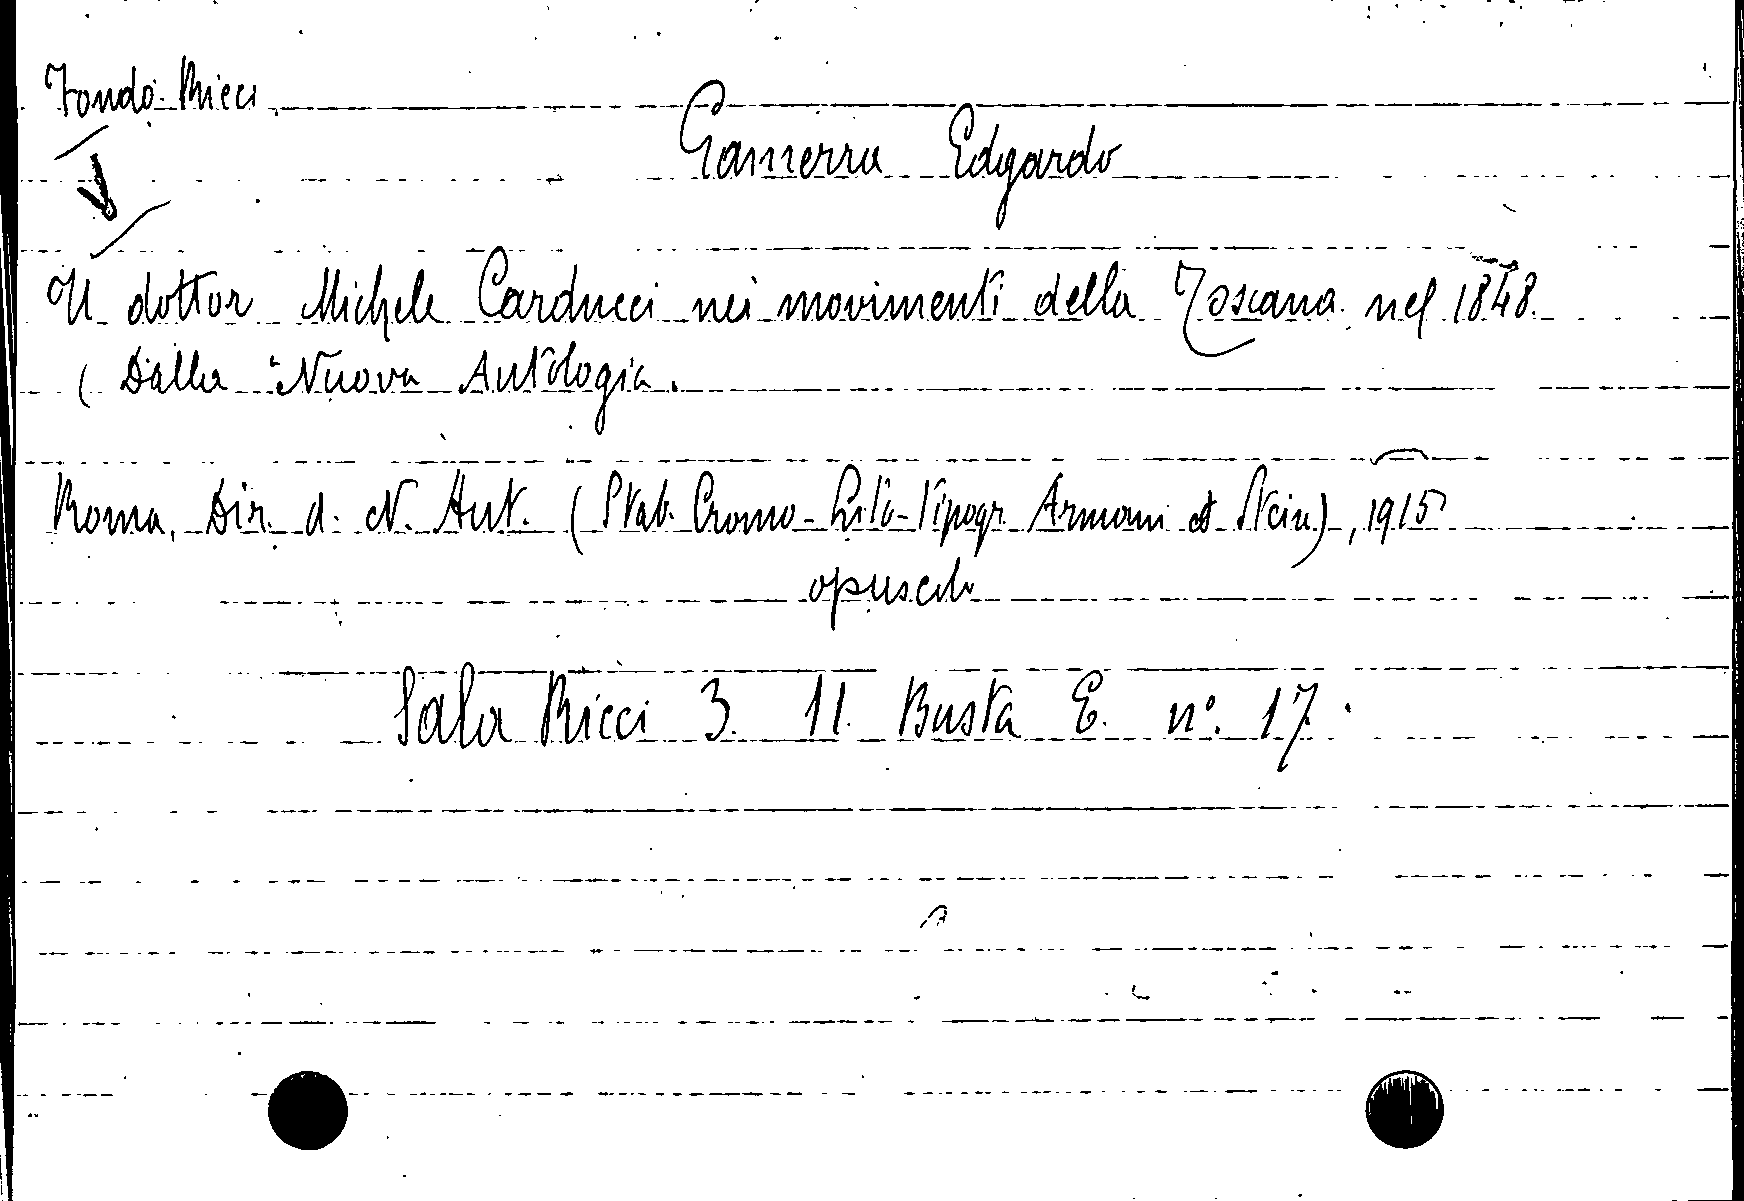 Fondo Ricci
Gamerra Edgardo
V
Il dottor Michele Carducci nei movimenti della Toscana nel 1848.
( Dalla "Nuova Antologia.
Roma, Dir. d. N. Ant. (Stab. Cromo-Lito-Tipogr. Armani et Stein), 1915
opuscolo
Sala Ricci 3. 11. Busta E. n°. 17.